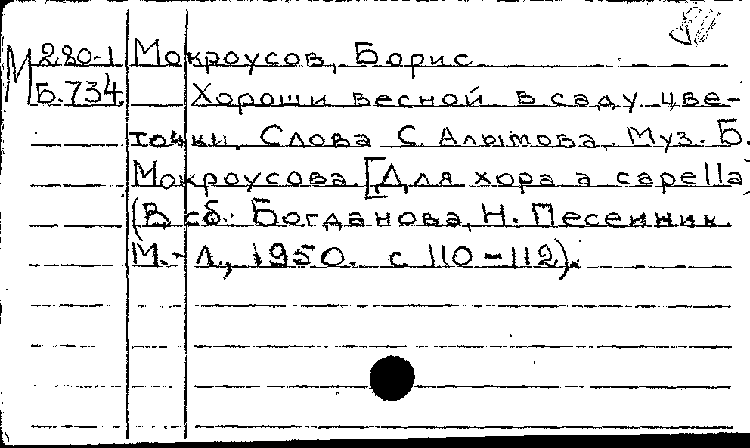 М 280-1 Мокроусов, Борис
Б.734 Хороши весной в саду цве-
точки. Слова С. Алымова. Муз. Б.
Мокроусова. [Для хора a capella]
(В сб.: Богданова, Н. Песенник.
М.-Л., 1950. с 110-112).